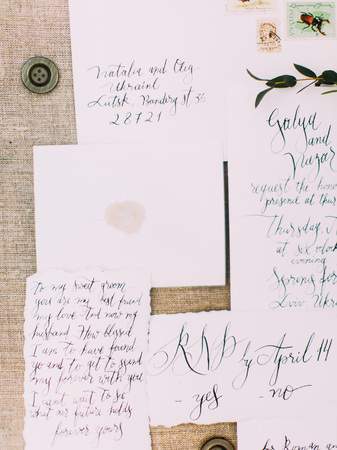 Natalia and Oleg
Ukraine
Lutsk, Bandery st 35
28721
Galya
and
Nazar
request the hono
presend at thur
Thursday,
at six o'clo
evening
Spring
Lviv Ukra
To my sweet groom
you are my best friend
my love. And now my
husband. How blessed
I am to have found
you and to get to spend
my forever with you
I can't wait to see
what our future holds
forever yours
RSVP by April 14
- yes - no
Roman an